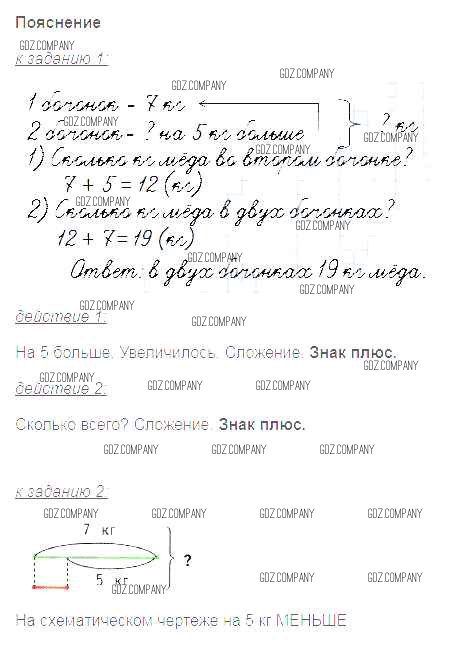 Пояснение
GDZ.COMPANY
к заданию 1:
GDZ.COMPANY
GDZ.COMPANY
1 бочонок - 7 кг
GDZ.COMPANY
2 бочонок - ? на 5 кг больше
? кг
GDZ.COMPANY
GDZ.COMPANY
1) Сколько кг мёда во втором бочонке?
7 + 5 = 12 (кг)
GDZ.COMPANY
2) Сколько кг мёда в двух бочонках?
GDZ.COMPANY
12 + 7 = 19 (кг)
GDZ.COMPANY
Ответ: в двух бочонках 19 кг мёда.
GDZ.COMPANY
GDZ.COMPANY
действие 1:
GDZ.COMPANY
На 5 больше. Увеличилось. Сложение. Знак плюс.
GDZ.COMPANY
GDZ.COMPANY
действие 2:
GDZ.COMPANY GDZ.COMPANY
Сколько всего? Сложение. Знак плюс.
GDZ.COMPANY GDZ.COMPANY GDZ.COMPANY
к заданию 2:
GDZ.COMPANY GDZ.COMPANY GDZ.COMPANY GDZ.COMPANY
7 кг
?
5 кг
GDZ.COMPANY GDZ.COMPANY GDZ.COMPANY
На схематическом чертеже на 5 кг МЕНЬШЕ